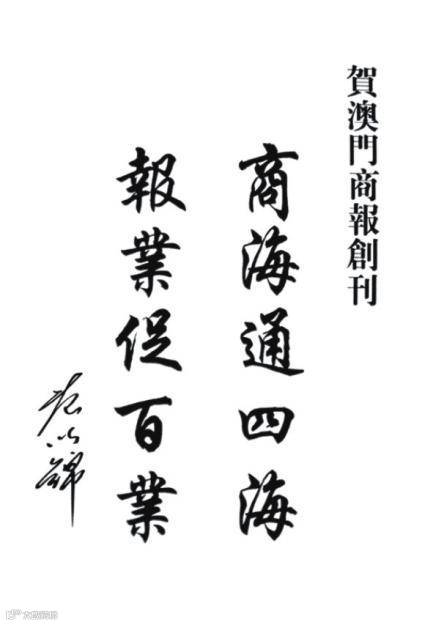 賀澳門商報創刊
商海通四海
報業促百業
范以錦